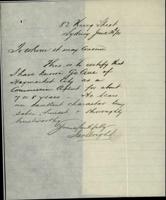 82 King Street
Sydney June 16/90
To whom it may Concern
This is to certify that
I have known
Haymarket City as a
Commission Agent for about
7 or 8 years - He bears
an excellent character being
sober, honest & thoroughly
trustworthy
Yours faithfully